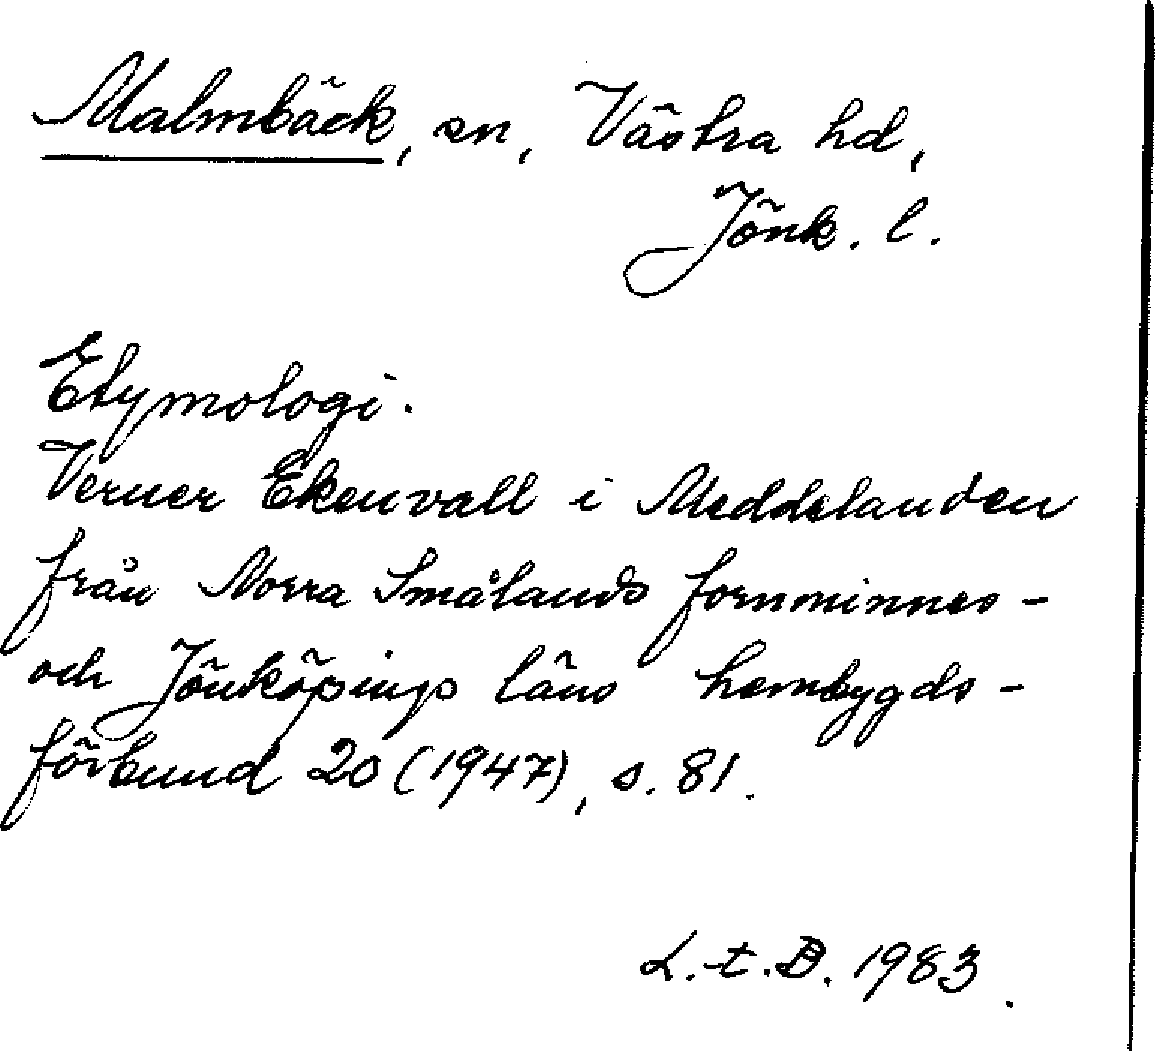 Malmbäck, sn, Västra hd,
Jönk. l.
Etymologi.
Verner Ekenvall i Meddelanden
från Norra Smålands fornminnes-
och Jönköpings läns hembygds-
förbund 20 (1947), s. 81.
L.t.B. 1983.